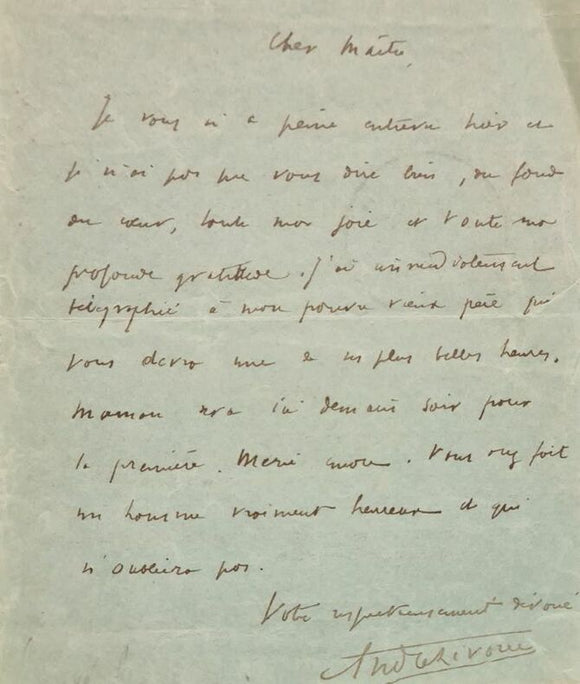 Cher Maître,
Je vous ai à peine entrevu hier et
je n'ai pas pu vous dire bien, du fond
du cœur, toute ma joie et toute ma
profonde gratitude. J'ai immédiatement
télégraphié à mon pauvre vieux père qui
vous devra une de ses plus belles heures.
Maman sera ici demain soir pour
la première. Merci encore. Vous avez fait
un homme vraiment heureux et qui
n'oubliera pas.
Votre respectueusement dévoué
André Rivoire